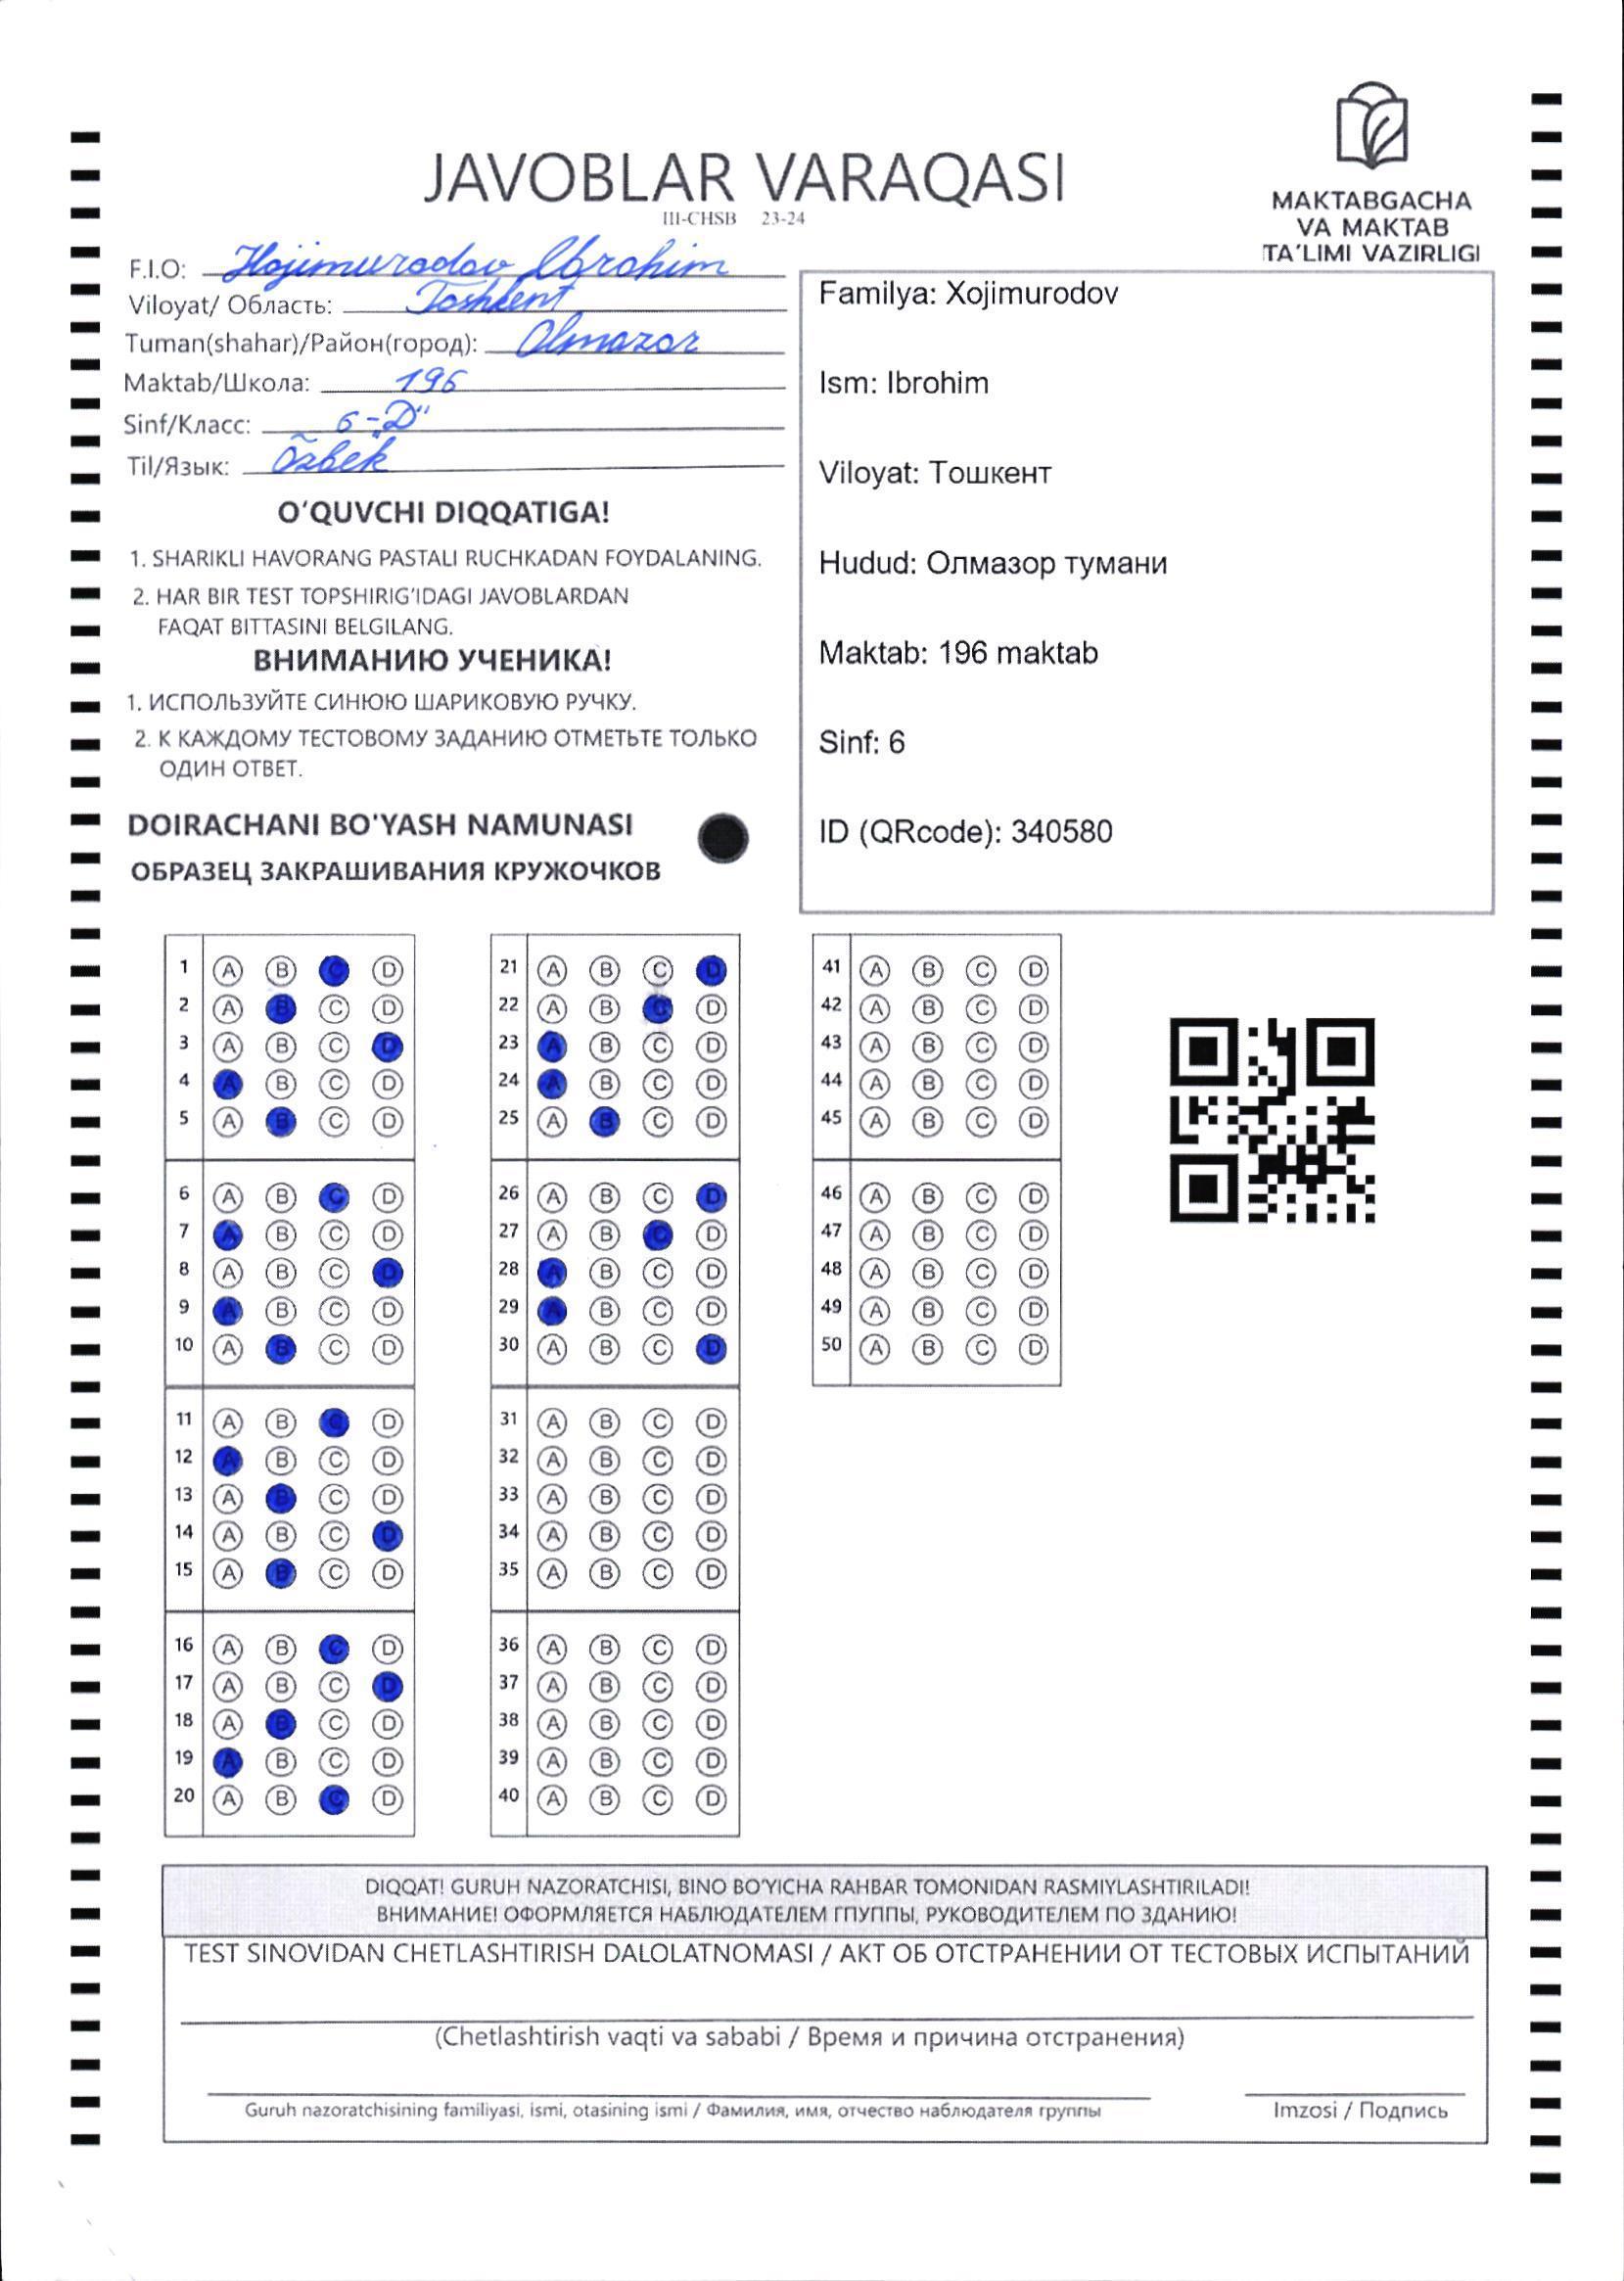 JAVOBLAR VARAQASI
III-CHSB 23-24
MAKTABGACHA
VA MAKTAB
TA'LIMI VAZIRLIGI
F.I.O: Hojimurodov Ibrohim
Viloyat/ Область: Toshkent
Tuman(shahar)/Район(город): Olmazor
Maktab/Школа: 196
Sinf/Класс: 6-„D"
Til/Язык: Õzbek
O'QUVCHI DIQQATIGA!
1. SHARIKLI HAVORANG PASTALI RUCHKADAN FOYDALANING.
2. HAR BIR TEST TOPSHIRIG'IDAGI JAVOBLARDAN
FAQAT BITTASINI BELGILANG.
ВНИМАНИЮ УЧЕНИКА!
1. ИСПОЛЬЗУЙТЕ СИНЮЮ ШАРИКОВУЮ РУЧКУ.
2. К КАЖДОМУ ТЕСТОВОМУ ЗАДАНИЮ ОТМЕТЬТЕ ТОЛЬКО
ОДИН ОТВЕТ.
DOIRACHANI BO'YASH NAMUNASI
ОБРАЗЕЦ ЗАКРАШИВАНИЯ КРУЖОЧКОВ
Familya: Xojimurodov
Ism: Ibrohim
Viloyat: Тошкент
Hudud: Олмазор тумани
Maktab: 196 maktab
Sinf: 6
ID (QRcode): 340580
1 A B C D
2 A B C D
3 A B C D
4 A B C D
5 A B C D
6 A B C D
7 A B C D
8 A B C D
9 A B C D
10 A B C D
11 A B C D
12 A B C D
13 A B C D
14 A B C D
15 A B C D
16 A B C D
17 A B C D
18 A B C D
19 A B C D
20 A B C D
21 A B C D
22 A B C D
23 A B C D
24 A B C D
25 A B C D
26 A B C D
27 A B C D
28 A B C D
29 A B C D
30 A B C D
31 A B C D
32 A B C D
33 A B C D
34 A B C D
35 A B C D
36 A B C D
37 A B C D
38 A B C D
39 A B C D
40 A B C D
41 A B C D
42 A B C D
43 A B C D
44 A B C D
45 A B C D
46 A B C D
47 A B C D
48 A B C D
49 A B C D
50 A B C D
DIQQAT! GURUH NAZORATCHISI, BINO BO'YICHA RAHBAR TOMONIDAN RASMIYLASHTIRILADI!
ВНИМАНИЕ! ОФОРМЛЯЕТСЯ НАБЛЮДАТЕЛЕМ ГПУППЫ, РУКОВОДИТЕЛЕМ ПО ЗДАНИЮ!
TEST SINOVIDAN CHETLASHTIRISH DALOLATNOMASI / АКТ ОБ ОТСТРАНЕНИИ ОТ ТЕСТОВЫХ ИСПЫТАНИЙ
(Chetlashtirish vaqti va sababi / Время и причина отстранения)
Guruh nazoratchisining familiyasi, ismi, otasining ismi / Фамилия, имя, отчество наблюдателя группы
Imzosi / Подпись